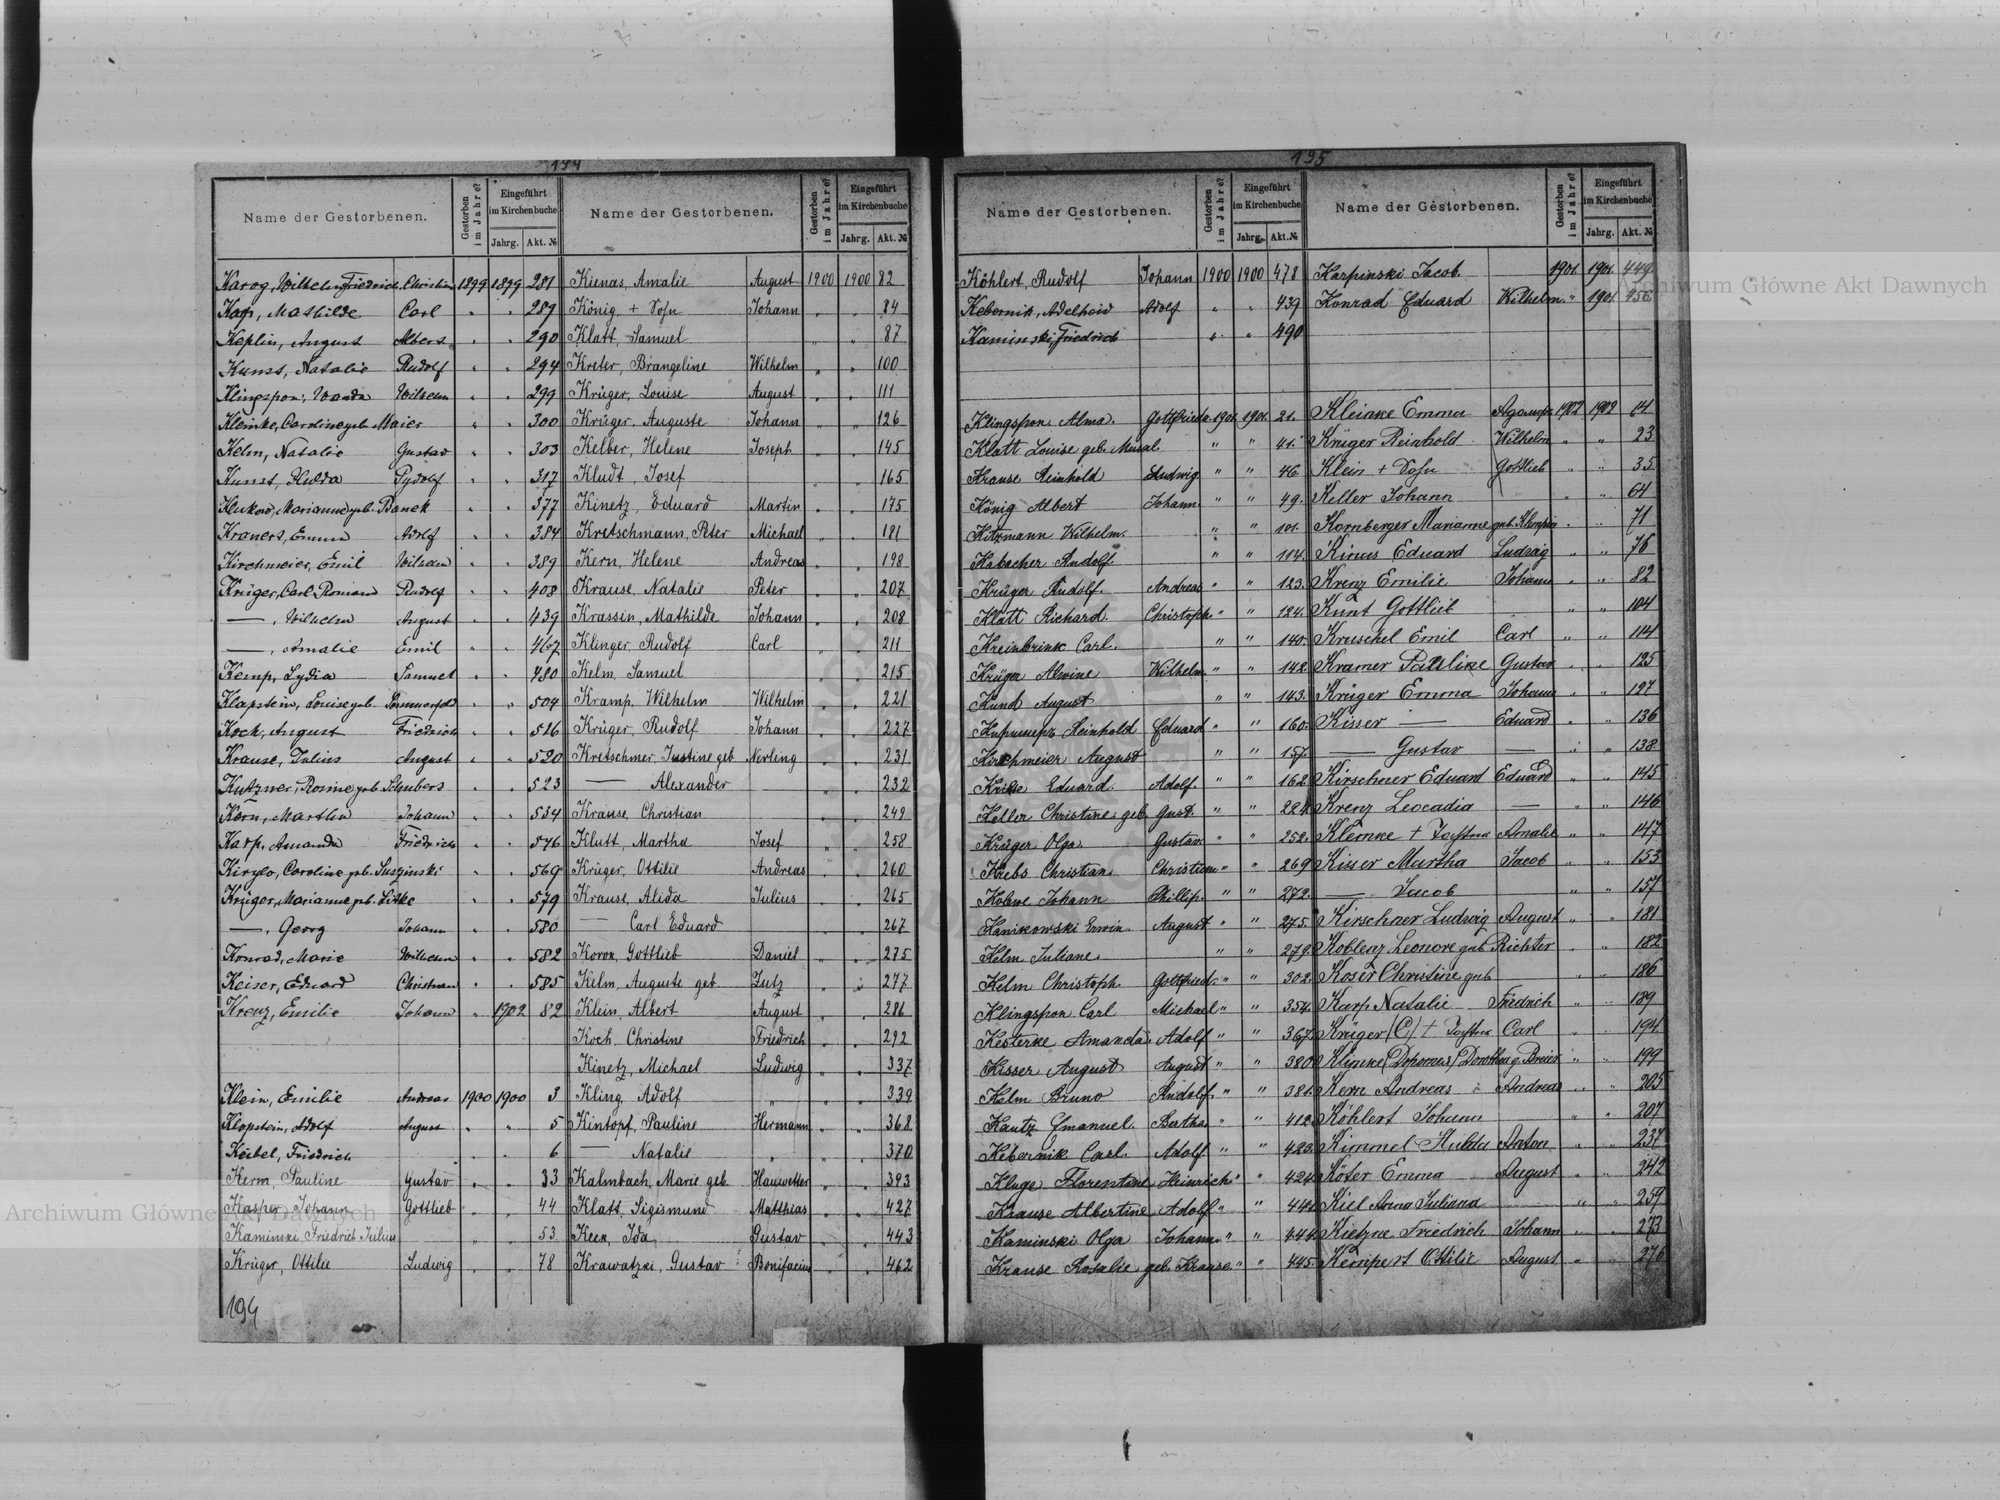 194
Name der Gestorbenen. Gestorben im Jahre? Eingeführt im Kirchenbuche Jahrg. Akt. №
Karog, Wilhelm Friedrich Christian 1899 1899 281
Karp, Mathilde Carl " " 289
Keplin, August Albert " " 290
Kunst, Natalie Rudolf " " 294
Klingspon, Wanda Wilhelm " " 299
Klemke, Caroline geb. Maier " " 300
Kelm, Natalie Gustav " " 303
Kunst, Hulda Rudolf " " 317
Klukow, Marianne geb. Banek " " 377
Kroners, Emma Adolf " " 384
Kirchmeier, Emil Wilhelm " " 389
Krüger, Carl Roman Rudolf " " 408
—, Wilhelm August " " 439
—, Amalie Emil " " 467
Kemp, Lydia Samuel " " 480
Klapstein, Louise geb. " " 504
Koch, August Friedrich " " 516
Krause, Julius August " " 520
Kutzner, Rosine geb. Schubert " " 523
Korn, Martin Johann " " 534
Karp, Amanda Friedrich " " 546
Kirylo, Caroline geb. Suszinski " " 569
Krüger, Marianne geb. Litke " " 579
—, Georg Johann " " 580
Konrad, Marie Wilhelm " " 582
Keiser, Eduard Christian " " 585
Krenz, Emilie Johann " 1902 82
Klein, Emilie Andreas 1900 1900 3
Klopstein, Adolf August " " 5
Keibel, Friedrich " " 6
Kerm, Pauline Gustav " " 33
Kasper, Johann Gottlieb " " 44
Kaminski Friedrich Julius " " 53
Krüger, Ottilie Ludwig " " 78
194
Name der Gestorbenen. Gestorben im Jahre? Eingeführt im Kirchenbuche Jahrg. Akt. №
Kienas, Amalie August 1900 1900 82
König, + Sohn Johann " " 84
Klatt, Samuel " " 87
Kreter, Brangeline Wilhelm " " 100
Krüger, Louise August " " 111
Krüger, Auguste Johann " " 126
Kelber, Helene Joseph " " 145
Kludt, Josef " " 165
Kinetz, Eduard Martin " " 175
Kretschmann, Peter Michael " " 181
Kern, Helene Andreas " " 198
Krause, Natalie Peter " " 207
Krassin, Mathilde Johann " " 208
Klinger, Rudolf Carl " " 211
Kelm, Samuel " " 215
Kramp, Wilhelm Wilhelm " " 221
Krüger, Rudolf Johann " " 227
Kretschmer, Justine geb Nerling " " 231
— Alexander — " " 232
Krause, Christian " " 249
Klutt, Martha Josef " " 258
Krüger, Ottilie Andreas " " 260
Krause, Alida Julius " " 265
— Carl Eduard " " 267
Gottlieb Daniel " " 275
Kelm, Auguste geb. Lutz " " 277
Klein, Albert August " " 286
Koch, Christine Friedrich " " 292
Kinetz, Michael Ludwig " " 337
Kling, Adolf " " " 339
Kintopf, Pauline Hermann " " 368
— Natalie " " " 370
Kalmbach, Marie geb. Hauwetter " " 393
Klatt, Sigismund Matthias " " 427
Keen, Ida Gustav " " 443
Krawatzki, Gustav Bonifacius " " 462
195
Name der Gestorbenen. Gestorben im Jahre? Eingeführt im Kirchenbuche Jahrg. Akt. №
Köhlert, Rudolf Johann 1900 1900 478
Kebernik, Adelheid Adolf " " 439
Kaminski, Friedrich " " 490
Klingspon Alma. Gottfried 1901 1901 21.
Klatt Louise geb. Musal. " " 41.
Krause Reinhold Ludwig " " 46.
König Albert Johann " " 49.
Kitzmann Wilhelm. " " 101.
Habacher Rudolf. " " 114.
Krüger Rudolf. Andreas " " 123.
Klatt Richard. Christoph " " 124.
Kreinbrink Carl. " " 140.
Krüger Alwine Wilhelm " " 142.
Kund August " " 143.
Reinhold Eduard " " 160.
Kirchmeier August " " 157.
Krike Eduard. Adolf. " " 162.
Keller Christine geb. Gust. " " 224.
Krüger Olga Gustav " " 252.
Krebs Christian Christian " " 269
Kolwe Johann Phillip. " " 272.
Kanikowski Erwin. August " " 275.
Kelm Juliane " " 279.
Kelm Christoph. Gottfried. " " 302.
Klingspon Carl Michael " " 354.
Kesterke Amanda Adolf " " 367.
Kisser August August " " 380
Kelm Bruno Rudolf. " " 381.
Kautz Emanuel. Bertha " " 412.
Kebernik Carl. Adolf " " 423.
Kluge Florentine Heinrich " " 424.
Krause Albertine Adolf " " 441.
Kaminski Olga Johann " " 444.
Krause Rosalie geb. Krause " " 445.
Name der Gestorbenen. Gestorben im Jahre? Eingeführt im Kirchenbuche Jahrg. Akt. №
Karpinski Jacob. — 1901 1901 449.
Konrad Eduard Wilhelm " 1901 456.
Kleinke Emma 1902 1902 14
Krüger Reinhold Wilhelm " " 23
Klein + Sohn Gottlieb " " 35
Keller Johann " " 64
Kornberger Marianne geb. Klempin " " 71
Eduard Ludwig " " 76
Krenz Emilie Johann " " 82
Kunt Gottlieb " " 104
Kruschel Emil Carl " " 114
Kramer Pauline Gustav " " 125
Krüger Emma Johann " " 127
Kisser — Eduard " " 136
— Gustav — " " 138
Kirschner Eduard Eduard " " 145
Krenz Leocadia — " " 146
Klemke + Tochter Amalie " " 147
Kisser Martha Jacob " " 153
— Jacob " " 157
Kirschner Ludwig August " " 181
Koblenz Leonore geb Richter " " 182
Koser Christine geb " " 186
Karp Natalie Friedrich " " 189
Krüger (C) + Tochter Carl " " 194
Klimke Dorothea g. Breier " " 199
Kern Andreas Andreas " " 205
Köhlert Johann " " 207
Kimmel Hulda Anton " " 237
Köter Emma August " " 242
Kiel Anna Juliana " " 259
Kietzne Friedrich Johann " " 273
Kempert Ottilie August " " 276
Archiwum Główne Akt Dawnych
Archiwum Główne Akt Dawnych